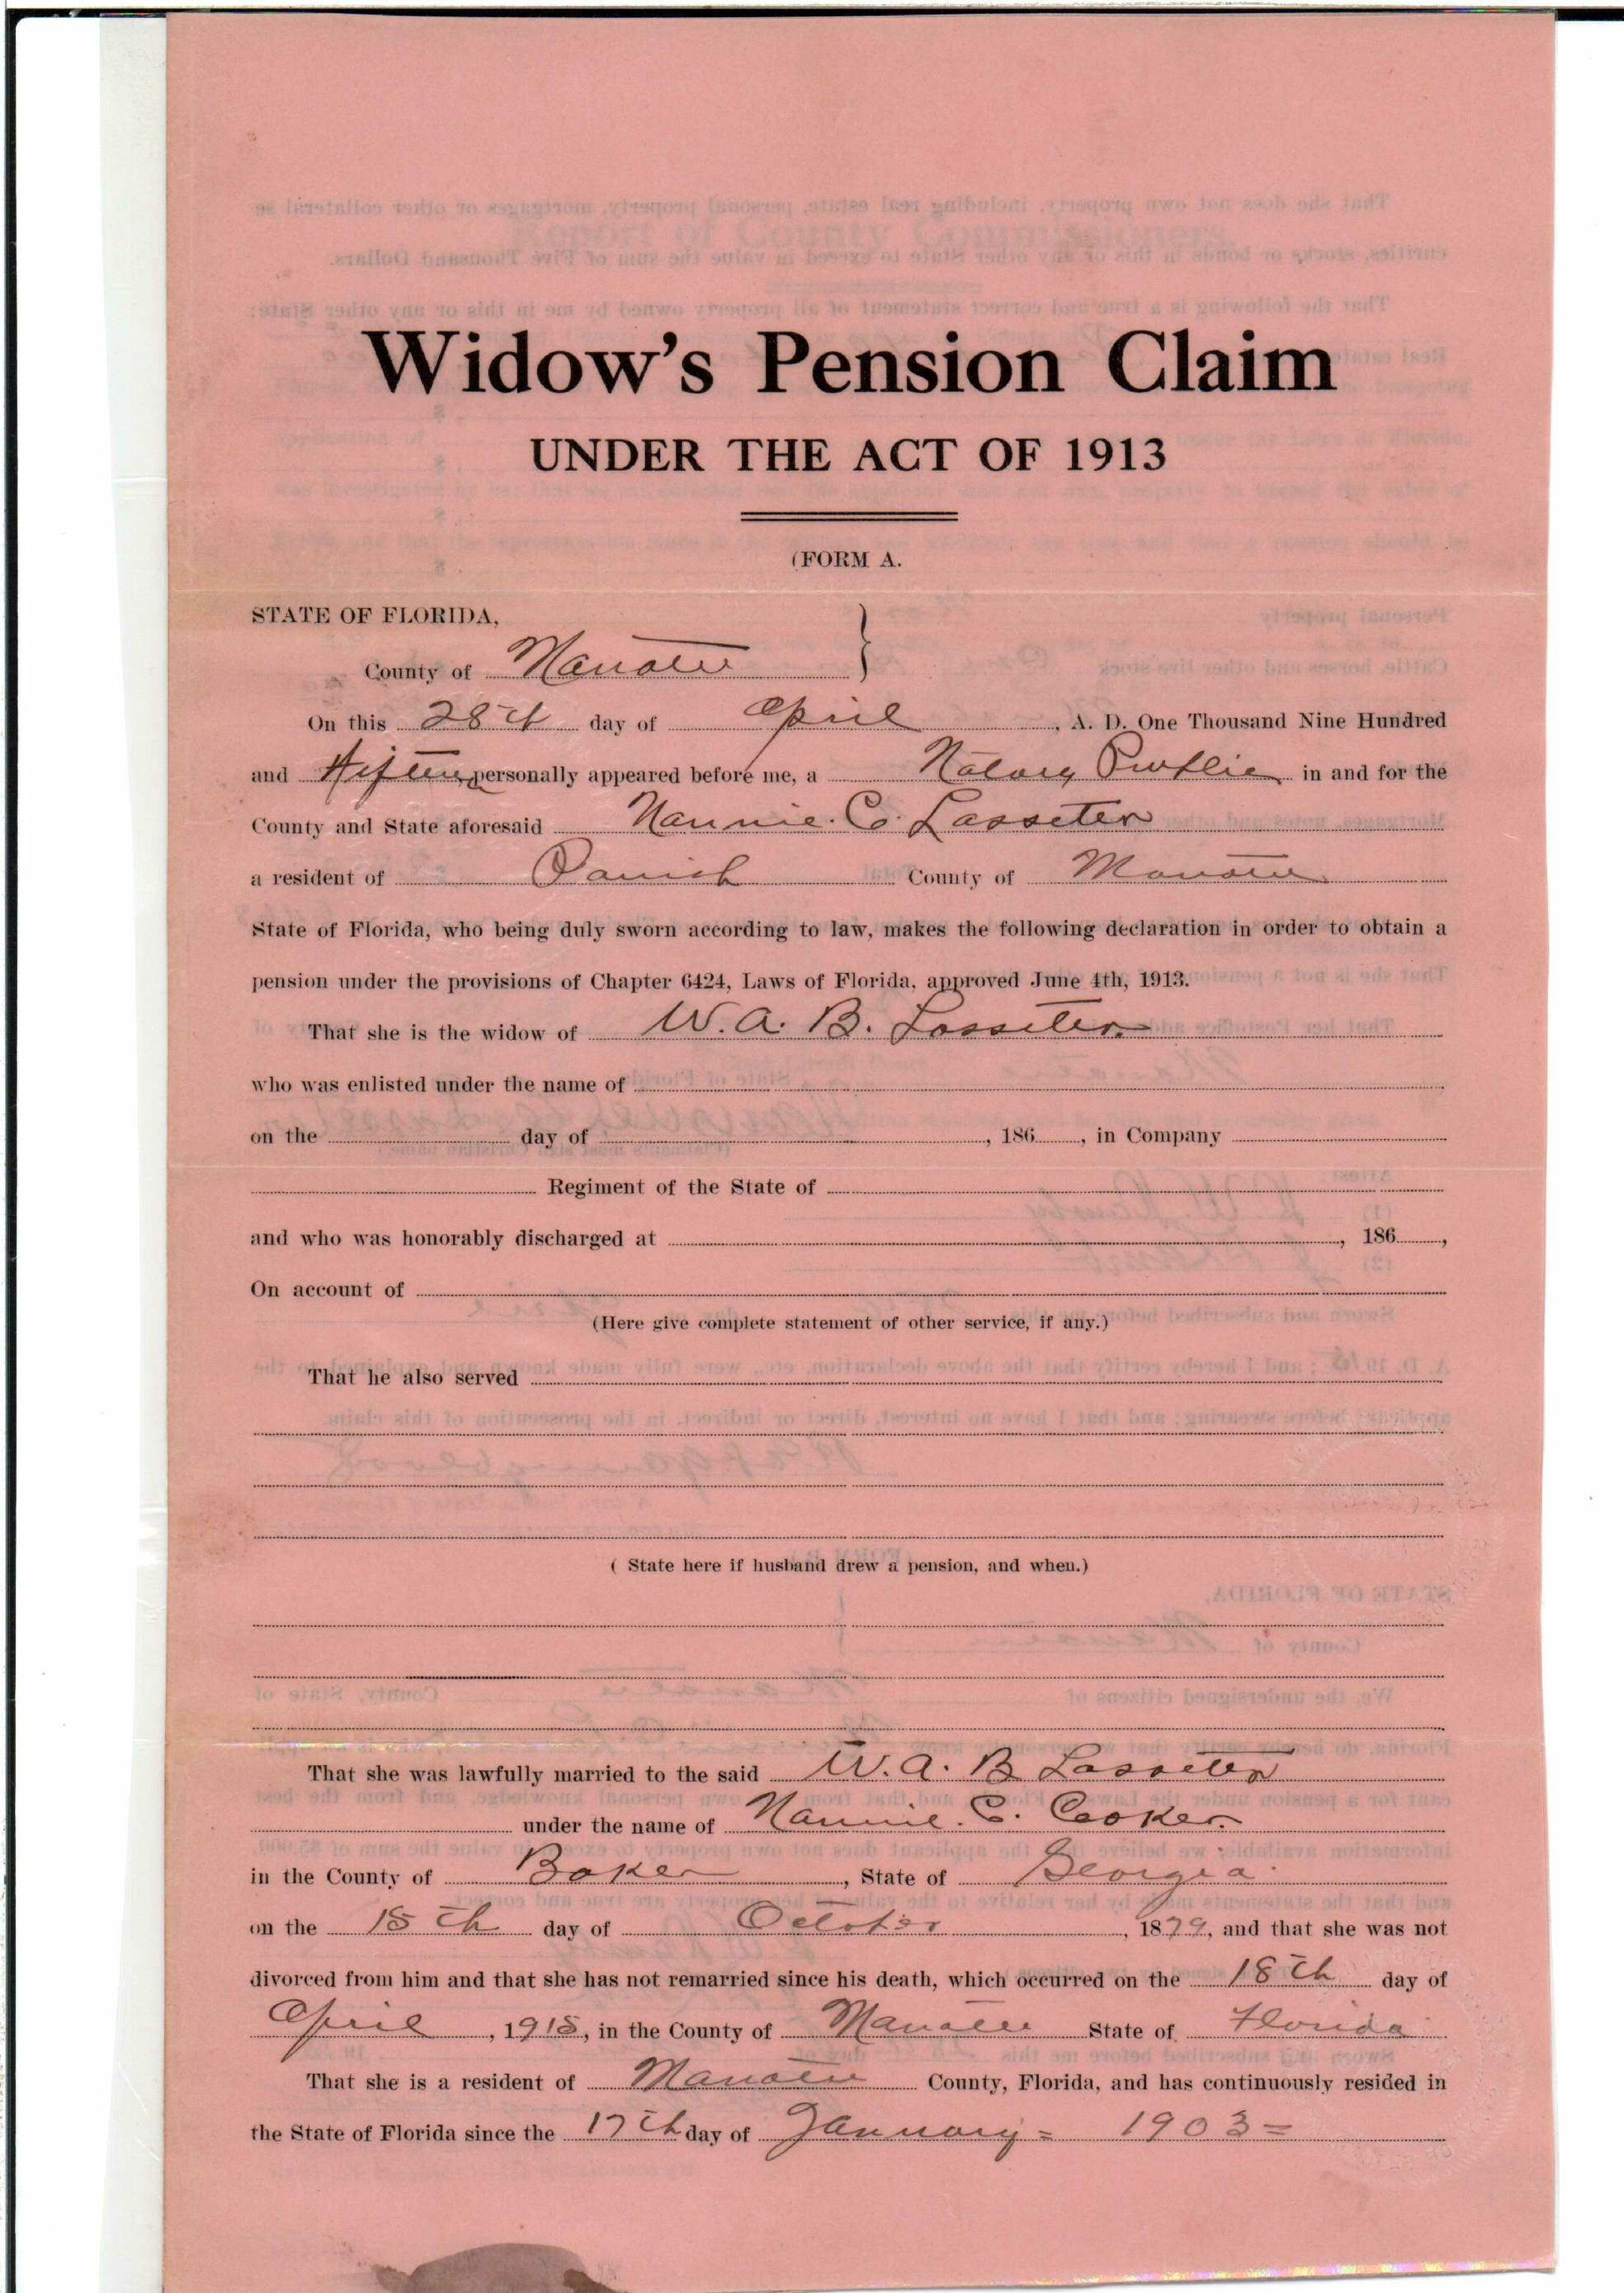 Widow's Pension Claim
UNDER THE ACT OF 1913
(FORM A.
STATE OF FLORIDA,
County of Manatee
On this 28th day of April, A. D. One Thousand Nine Hundred
and Fifteen personally appeared before me, a Notary Public in and for the
County and State aforesaid Nannie. C. Lasseter
a resident of Parrish County of Manatee
State of Florida, who being duly sworn according to law, makes the following declaration in order to obtain a
pension under the provisions of Chapter 6424, Laws of Florida, approved June 4th, 1913.
That she is the widow of W. A. B. Lasseter
who was enlisted under the name of
on the day of , 186 , in Company
Regiment of the State of
and who was honorably discharged at , 186 ,
On account of
(Here give complete statement of other service, if any.)
That he also served
( State here if husband drew a pension, and when.)
That she was lawfully married to the said W. A. B Lasseter
under the name of Nannie. C. Cooker.
in the County of Baker, State of Georgia.
on the 15th day of October, 1879, and that she was not
divorced from him and that she has not remarried since his death, which occurred on the 18th day of
April, 1915, in the County of Manatee State of Florida
That she is a resident of Manatee County, Florida, and has continuously resided in
the State of Florida since the 17th day of January = 1903 =